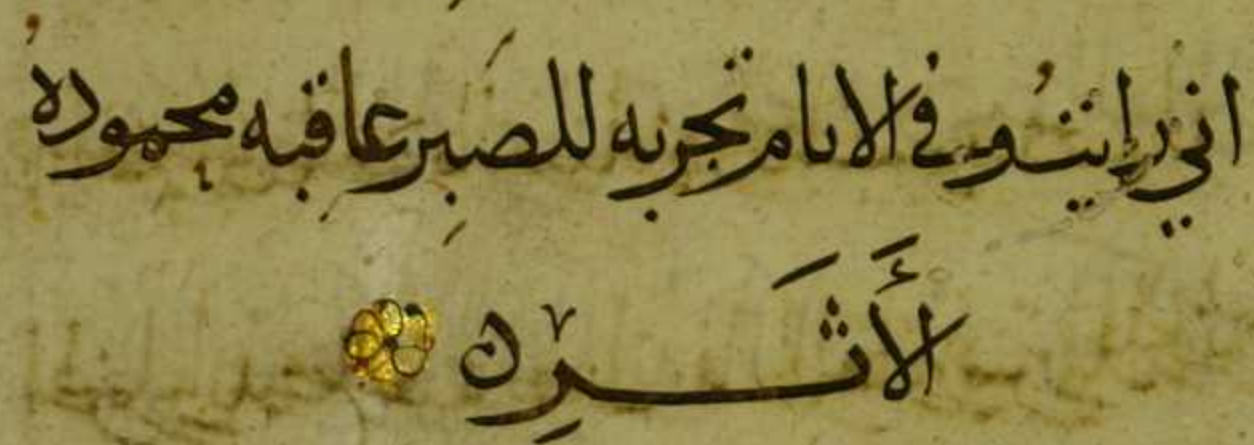 اني رايتُ و في الايام تجربه للصبر عاقبه محموده
الأَثَرِه